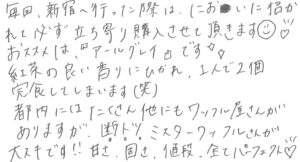 毎回、新宿へ行った際は、においに招か
れて必ず立ち寄り購入させて頂きます☺♡
おススメは、『アールグレイ』です♡
紅茶の良い香りにひかれ、1人で2個
完食してしまいます(笑)
都内にはたくさん他にもワッフル屋さんが
ありますが、断トツ、ミスターワッフルさんが
大スキです!!甘さ、固さ、値段、全てパーフェクト♡